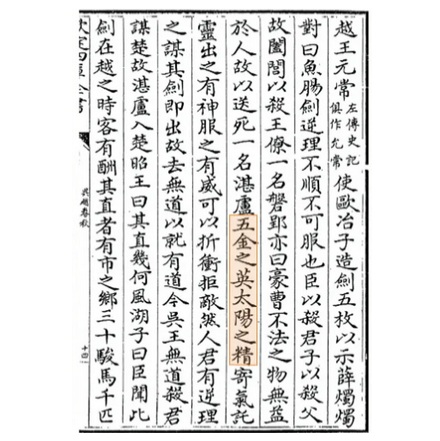 越王元常左傳史記俱作允常使歐冶子造劍五枚以示薛燭燭
對曰魚腸劍逆理不順不可服也臣以殺君子以殺父
故闔閭以殺王僚一名磐郢亦曰豪曹不法之物無益
於人故以送死一名湛盧五金之英太陽之精寄氣託
靈出之有神服之有威可以折衝拒敵然人君有逆理
之謀其劍即出故去無道以就有道今吳王無道殺君
謀楚故湛盧入楚昭王曰其直幾何風湖子曰臣聞此
劍在越之時客有酬其直者有市之鄉三十駿馬千匹
欽定四庫全書
吳越春秋
十四